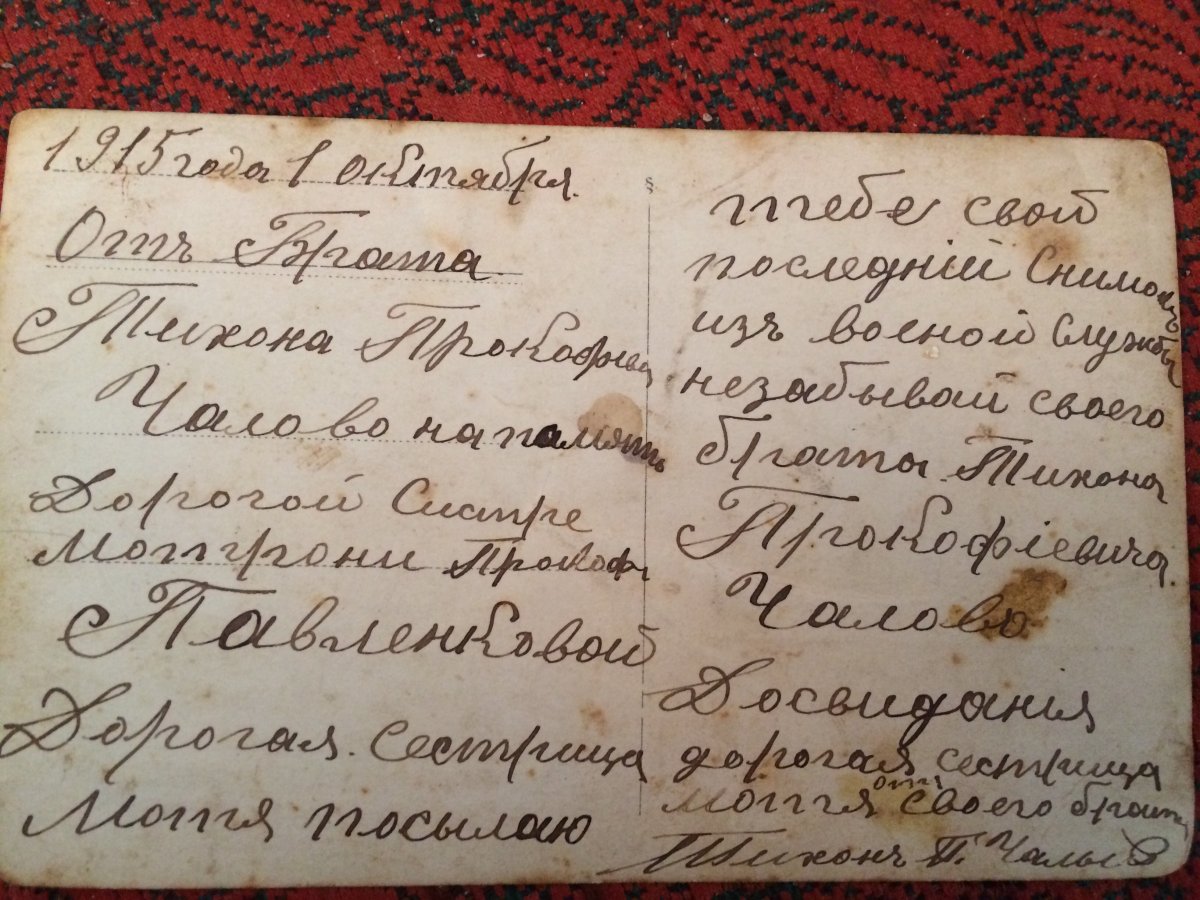 1915 года 1 октября.
Отъ Брата
Тихона Прокофиева
Чалово на память
Дорогой Систре
Мотрони Прокофи
Павленковой
Дорогая сестрица
Мотя посылаю
тебе свой
последнiй Снимокъ
изъ военой Службы
незабывай своего
брата Тихона
Прокофiевича
Чалово
Досвиданiя
дорогая сестрица
Мотя отъ своего брата
Тихонъ П. Чалый